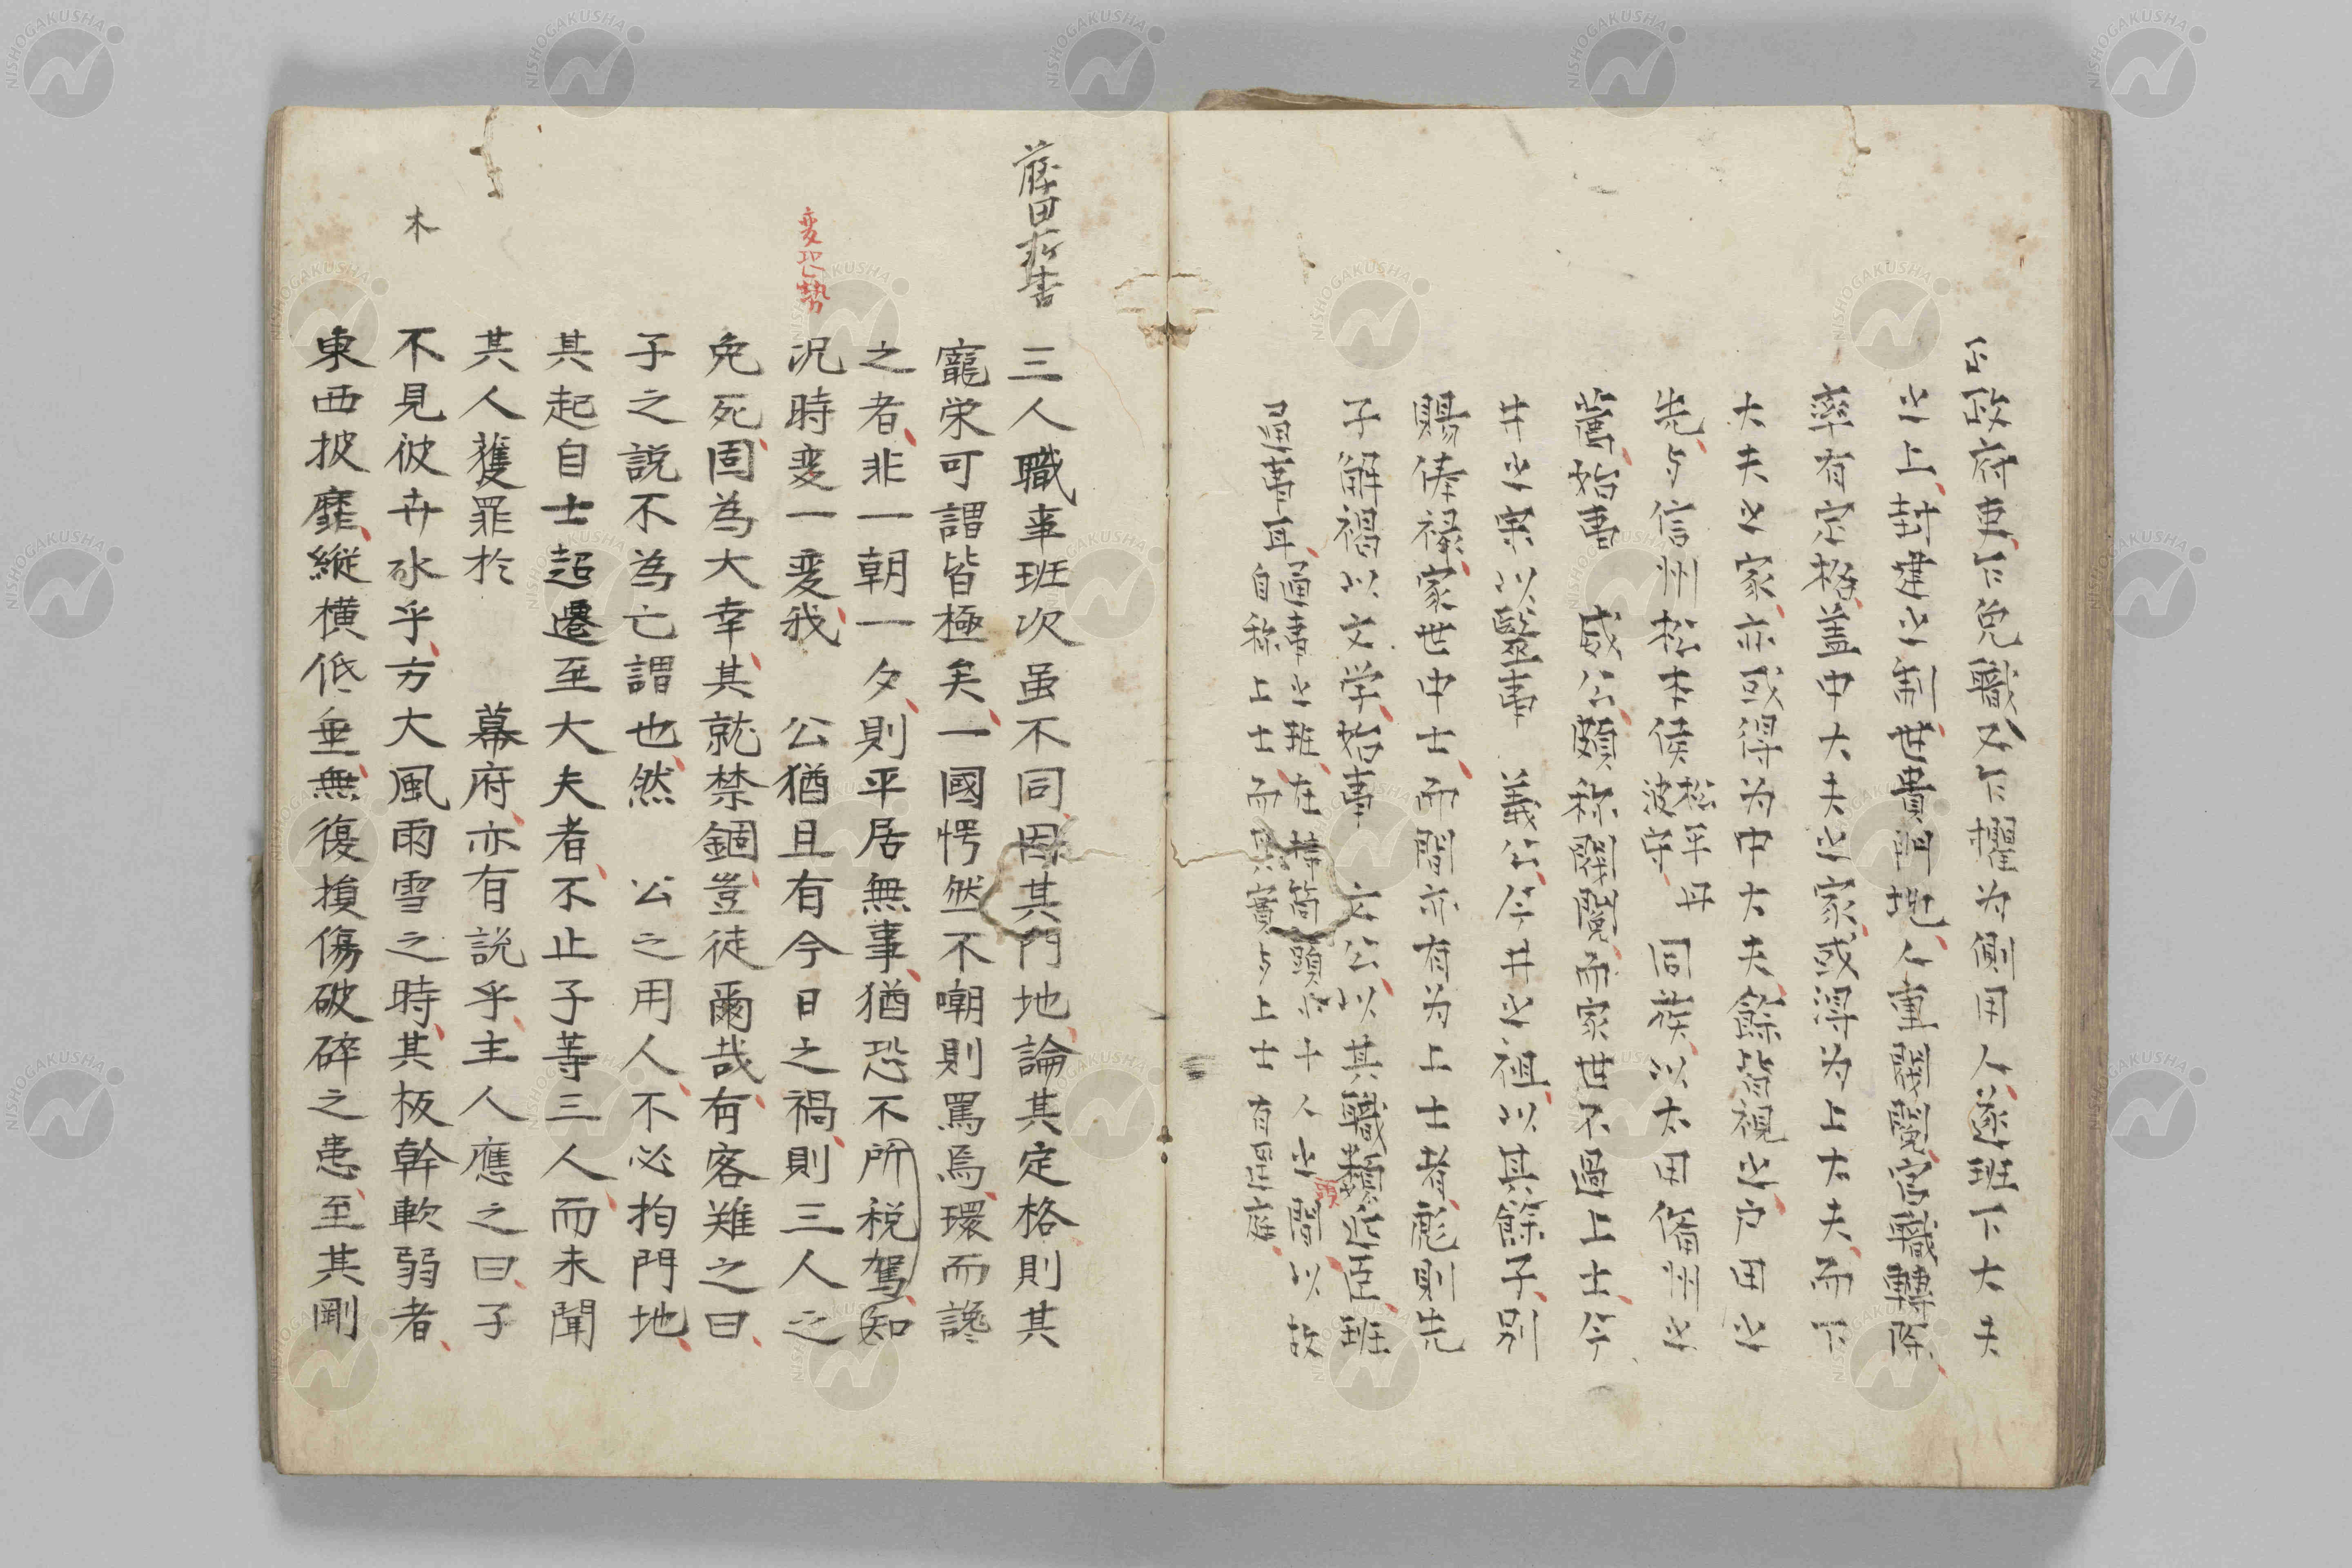 公政府吏、下免職、又下擢为側用人、遂班下大夫
之上、封建之制、世貴門地、人重閥閲、官職轉除
率有定格、盖中大夫之家、或得为上大夫、而下
大夫之家、亦或得为中大夫、餘皆視之、戸田之
先、与信州松本侯松平丹波守、同族、以太田備州之
舊、始事 威公、頗称閥閲、而家世不過上士、今
井之宗以醫事 義公、今井之祖、以其餘子、別
賜俸禄、家世中士、而間亦有为上士者、彪則先
子解褐以文学、始事 文公、以其職類近臣、班
通事耳、通事之班、在持筒頭、之間、以故
自称上士、而其實与上士有逕庭、
藤田彪著
三人職事班次虽不同、因其門地、論其定格、則其
寵栄可謂皆極矣、一國愕然、不嘲則罵焉、環而讒
之者、非一朝一夕、則平居無事、猶恐不所税駕、知
変地勢
况時変一変、我 公猶且有今日之禍、則三人之
免死、固為大幸、其就禁錮、豈徒爾哉、有客难之曰、
子之説不為亡謂也、然 公之用人、不必拘門地、
其起自士超遷至大夫者、不止子等三人、而未聞
其人獲罪於 幕府、亦有説乎、主人應之曰、子
木
不見彼卉水乎、方大風雨雪之時、其板幹軟弱者、
東西披靡、縦横低垂、無復損傷破碎之患、至其剛
NISHOGAKUSHA